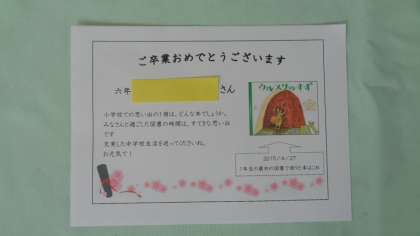 ご卒業おめでとうございます
六年
さん
小学校での思い出の1冊は、どんな本でしょうか。
みなさんと過ごした図書の時間は、すてきな思い出
です
充実した中学校生活を送ってくださいね。
お元気で！
ウルスリのすず
2015/4/27